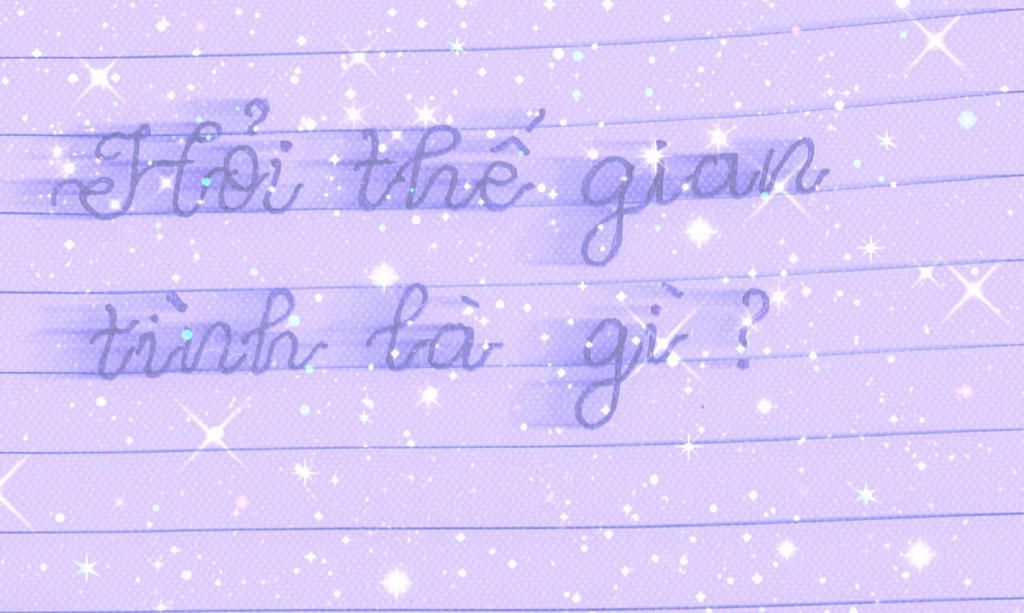 Hỏi thế gian
tình là gì ?